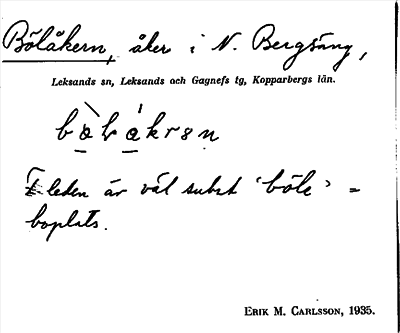 Bölåkern, åker i N. Bergsäng,
Leksands sn, Leksands och Gagnefs tg, Kopparbergs län.
F leden är väl subst 'böle' =
boplats.
ERIK M. CARLSSON, 1935.